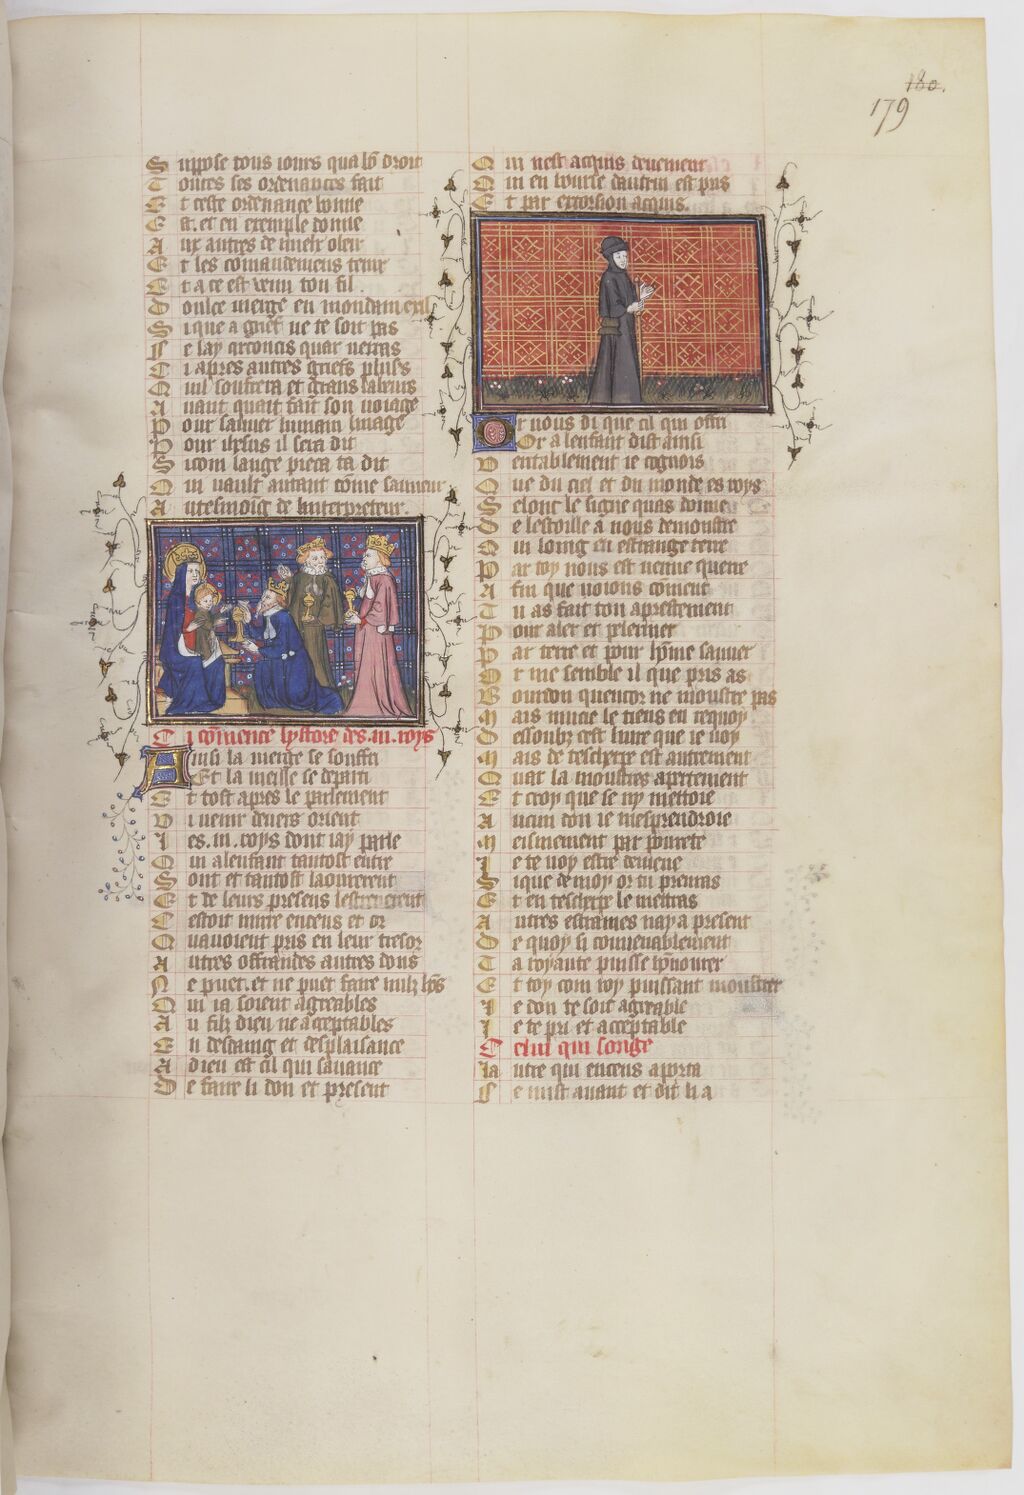 180.
179
Suppose tous iours qua lō droit
Toutes ses ordenances fait
Et ceste ordenance bonne
Est. et en exemple donne
Aux autres de
Et les comandemens tenir
Et a ce est venu ton fil.
Doulce vierge en mondement
Sique a grief ne te soit pas
Ie lay circoncis quar verras
Ci apres autres griefs pluss
Quil souffrera et grans labeurs
Avant quait fait son voiage
Pour sauver humain linage
Pour ihesus il sera dit
Sicom lange pieca ta dit
Qui vault autant cōme sauveur
Au tesmoig de linterpreteur.
Ci cōmence lystore des .iii. roys
Ainsi la vierge se souffri
Et la messe se departi
Et tost apres le parlement
Vi venir devers orient
Les .iii. roys dont iay parle
Qui a lenfant tantost entre
Sont et tantost laourerent
Et de leurs presens
Cestoit mirre encens et or
Quavoient pris en leur tresor
Autres offrandes autres dons
Ne puet. et ne puet faire nulz hōs
Qui ia soient agreables
Au filz dieu ne acceptables
En desdaing et desplaisance
A dieu est cil qui savance
De faire li don et present
Qui nest acquis deuement
Qui en bourse dautrui est pris
Et par extorsion acquis.
Or vous di que cil qui offri
Or a lenfant dist ainsi
Veritablement ie cognois
Que du ciel et du monde es roys
Selonc le signe quas donne
De lestoille a nous demonstre
Qui loing en estrange terre
Par toy nous est venue querre
Afin que voions coment
Tu as fait ton aprestement
Pour aler et peleriner
Par terre et pour hōme sauver
Or me semble il que pris as
Bourdon quencor ne moustre pas
Mais mucie le tiens en requoy
Dessoubz cest
Mais de lescherpe est autrement
Quar la moustres apertement
Et croy que se ny mettoie
Aucun don ie mesprendroie
Meismement par povrete
Ie te voy estre demene
Sique de moy or tu prenras
Et en lescherpe le mettras
Autres estraines nay a present
De quoy si convenablement
Ta royaute puisse hōnourer
Et toy com roy puissant moustrer
Le don te soit agreable
Ie te pri et acceptable
Celui qui songe
Lautre qui encens aporta
Se mist avant et dit li a